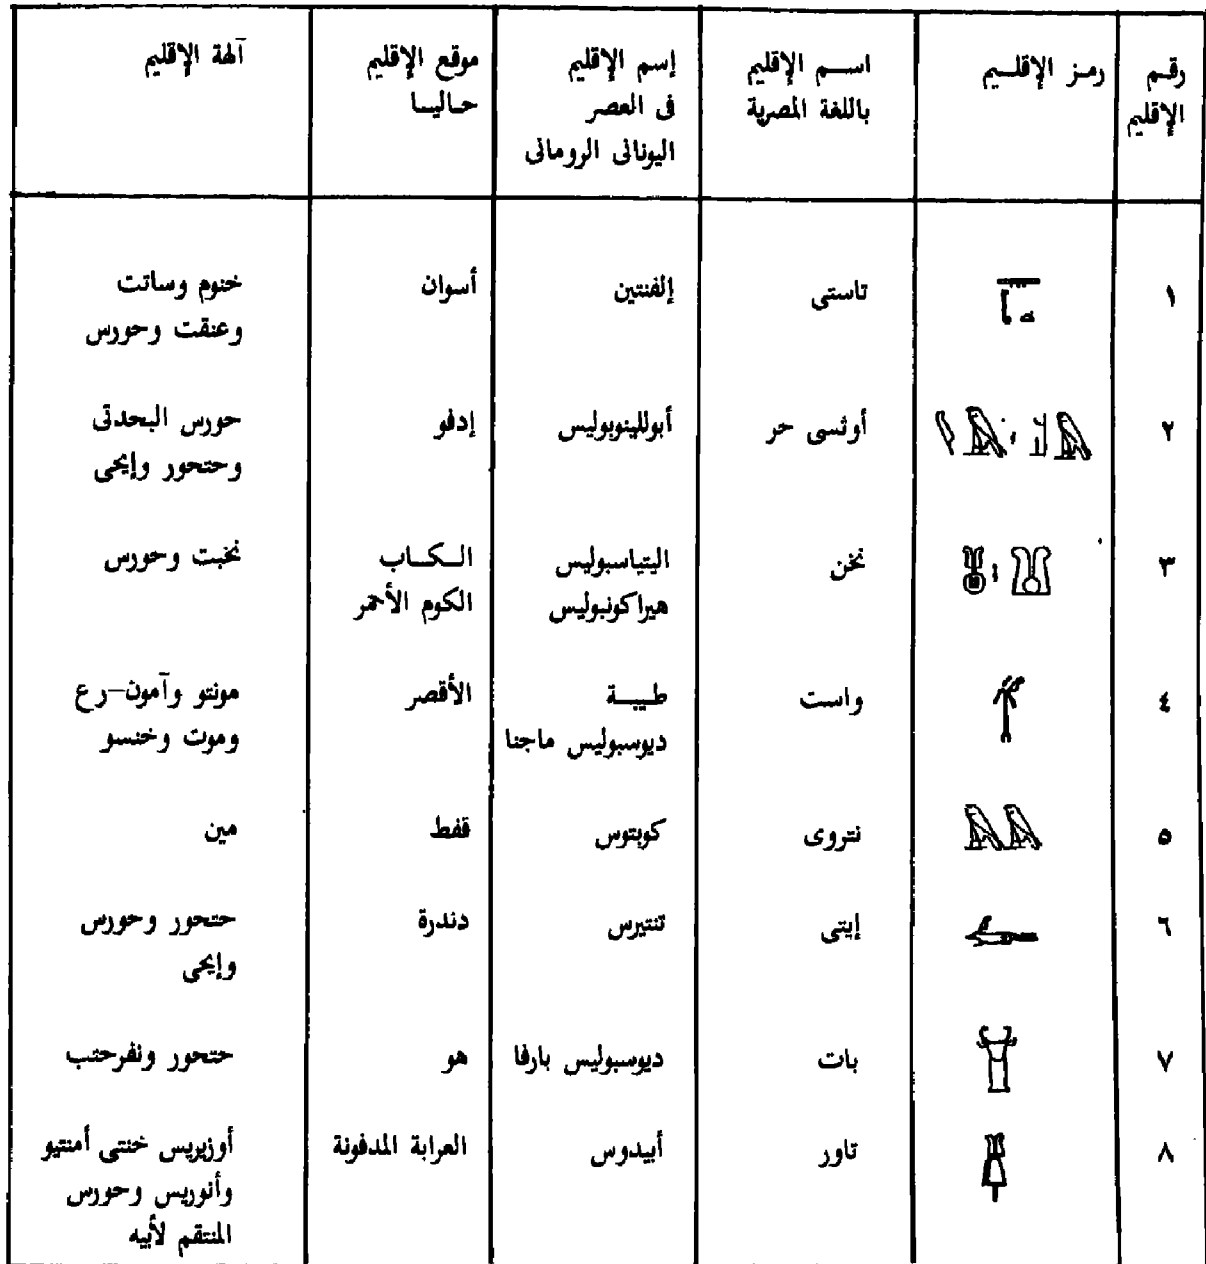 رقم الإقليم | رمز الإقليم | اسم الإقليم باللغة المصرية | إسم الإقليم فى العصر اليونانى الرومانى | موقع الإقليم حاليا | آلهة الإقليم
١ | تاستى | إلفنتين | أسوان | خنوم وساتت وعنقت وحورس
٢ | أوثسى حر | أبوللينوبوليس | إدفو | حورس البحدتى وحتحور وإيحى
٣ | نخن | اليتياسبوليس هيراكونبوليس | الكاب الكوم الأحمر | نخبت وحورس
٤ | واست | طيبة ديوسبوليس ماجنا | الأقصر | مونتو وآمون–رع وموت وخنسو
٥ | نتروى | كوبتوس | قفط | مين
٦ | إيتى | تنتيرس | دندرة | حتحور وحورس وإيحى
٧ | بات | ديوسبوليس بارفا | هو | حتحور ونفرحتب
٨ | تاور | أبيدوس | العرابة المدفونة | أوزيريس خنتى أمنتيو وأنوريس وحورس المنتقم لأبيه